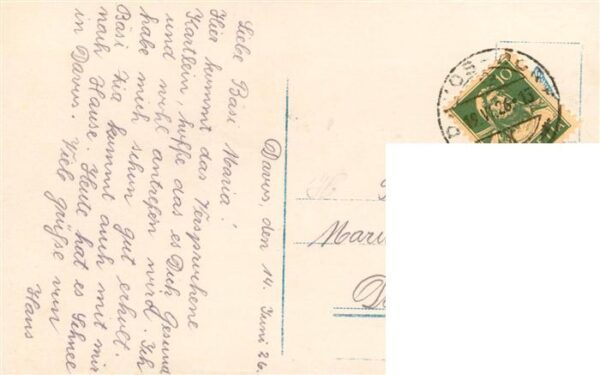 Davos, den 14. Juni 26.
Liebe Bäsi Maria!
Hier kommt das Versprochene
Kartlein, hoffe das es Dich Gesund
und wohl antrefen wird. Ich
habe mich schon gut erholt.
Bäsi Zia kommt auch mit mir
nach Hause. Heute hat es Schnee
in Davos. Viele grüße von
Hans
10